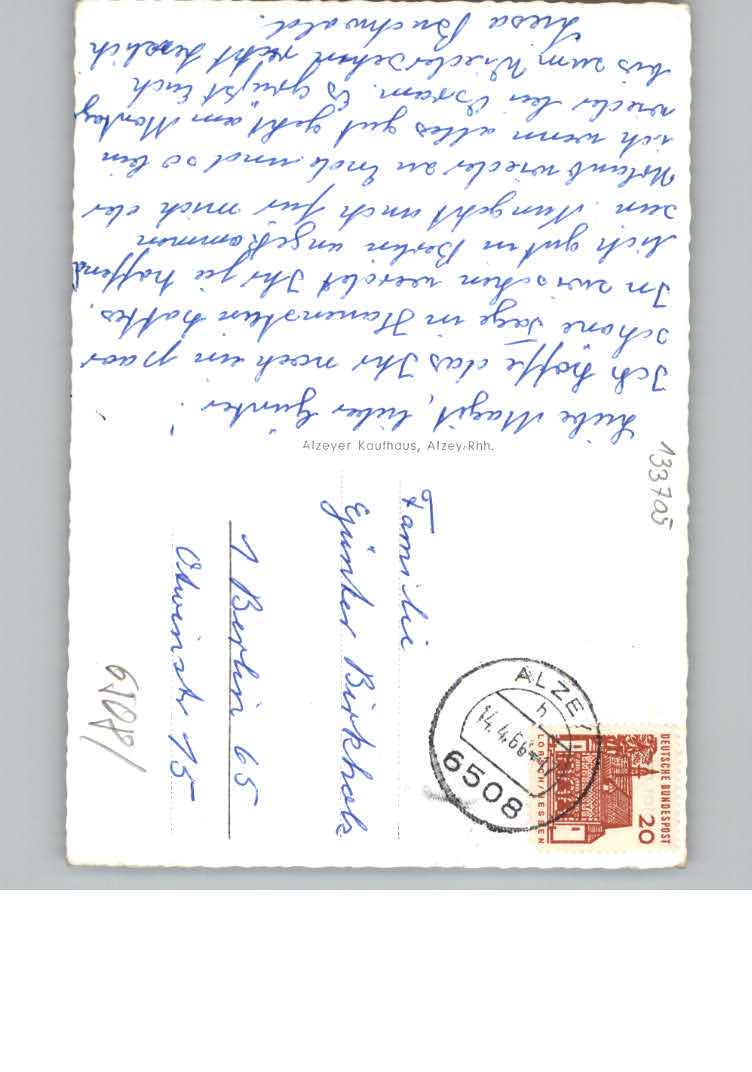 Liebe Magit, lieber Günter!
Ich hoffe das Ihr noch ein paar
schöne Tage in Hanenstein hattes.
In zwischen werdet Ihr ja hoffend
lich gut in Berlin angekommen
sein. Nun geht auch für mich der
Urlaub wieder zu Ende und so bin
ich wenn alles gut geht am Montag
wieder bei Osram. Es grüßt Euch
bis zum Wiedersehen recht herzlich
Liesa Buchwald.
Alzeyer Kaufhaus, Alzey/Rhh.
133705
Familie
Günter Birkholz
1 Berlin 65
Otwinstr 15
ALZEY
14.4.66
6508
DEUTSCHE BUNDESPOST
20
LORSCH/HESSEN